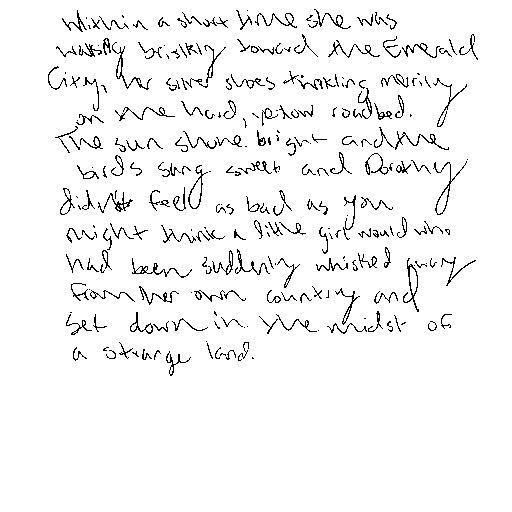 Within a short time she was
walking briskly toward the Emerald
City, her silver shoes tinkling merrily
on the hard, yellow roadbed.
The sun shone bright and the
birds sang sweet and Dorothy
didn't feel as bad as you
might think a little girl would who
had been suddenly whisked away
from her own country and
set down in the midst of
a strange land.